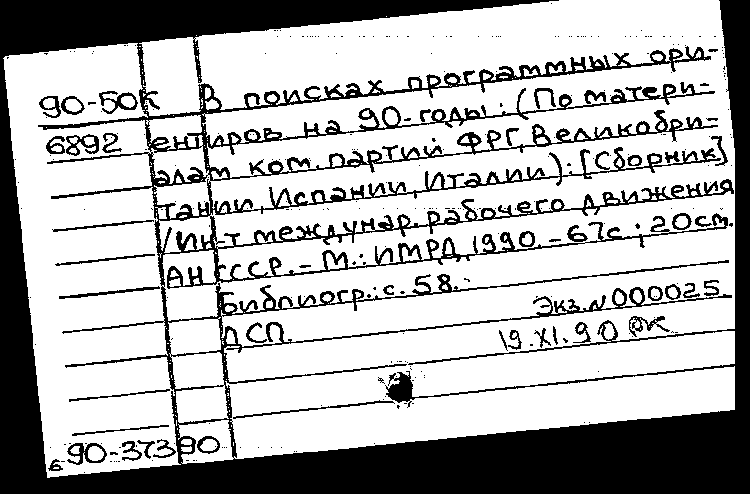 90-50К В поисках программных ори-
6892 ентиров на 90-годы: (По матери-
алам ком. партий ФРГ, Великобри-
тании, Испании, Италии): [Сборник]
/Ин-т междунар. рабочего движения
АН СССР. - М.: ИМРД, 1990. - 67с; 20см.
Библиогр.: с. 58.
ДСП. Экз. N 000025.
19.XI.90
б 90-37390